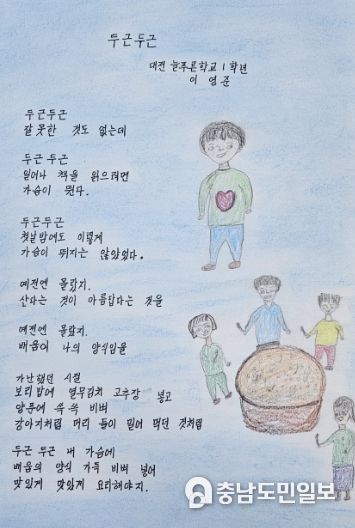 두근두근
대전 늘푸른학교 1학년
이 영 준
두근두근
잘 못한 것도 없는데
두근 두근
일어나 책을 읽으려면
가슴이 뛴다.
두근두근
첫날밤에도 이렇게
가슴이 뛰지는 않았었다.
예전엔 몰랐지.
산다는 것이 아름답다는 것을
예전엔 몰랐지.
배움이 나의 양식임을
가난했던 시절
보리밥에 열무김치 고추장 넣고
양푼에 쓱 쓱 비벼
강아지처럼 머리 들이 밀어 먹던 것처럼
두근 두근 내 가슴에
배움의 양식 가득 비벼 넣어
맛있게 맛있게 요리해야지.
충남도민일보